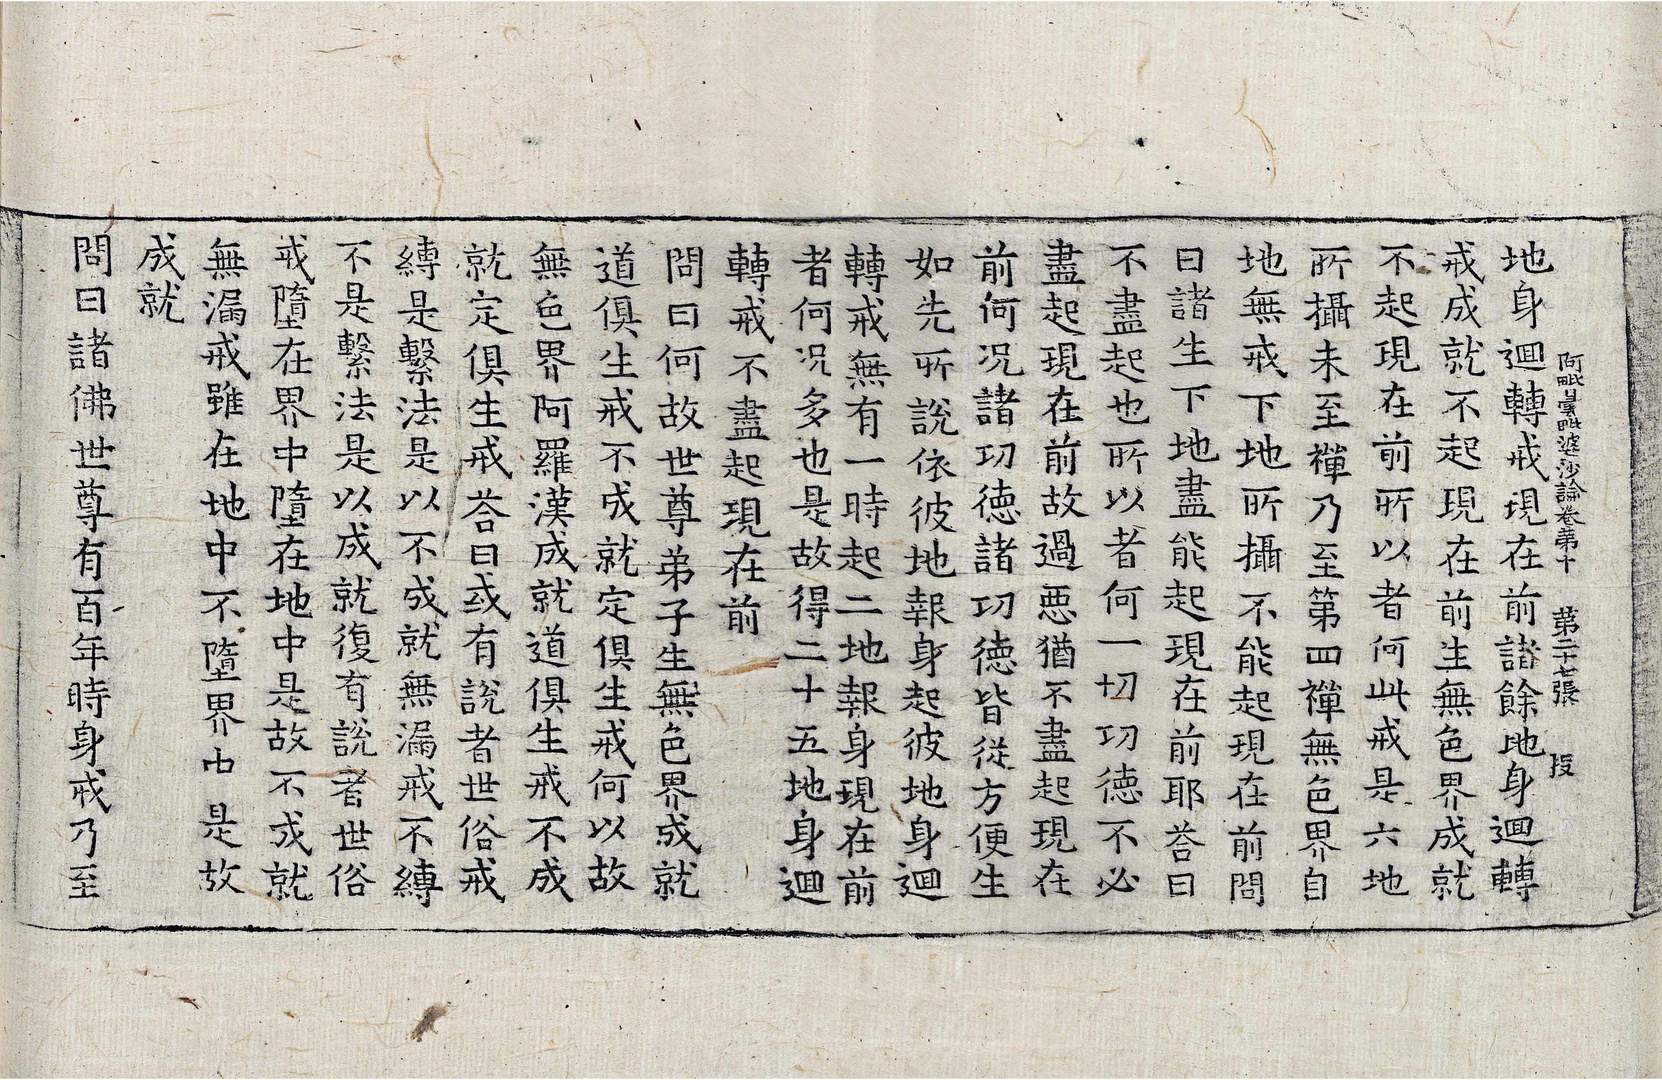 阿毗曇毗婆沙論卷第十 第二十七張 投
地身迴轉戒現在前諸餘地身迴轉
戒成就不起現在前生無色界成就
不起現在前所以者何此戒是六地
所攝未至禪乃至第四禪無色界自
地無戒下地所攝不能起現在前問
曰諸生下地盡能起現在前耶荅曰
不盡起也所以者何一切功德不必
盡起現在前故過惡猶不盡起現在
前何况諸功德諸功德皆從方便生
如先所說依彼地報身起彼地身迴
轉戒無有一時起二地報身現在前
者何况多也是故得二十五地身迴
轉戒不盡起現在前
問曰何故世尊弟子生無色界成就
道俱生戒不成就定俱生戒何以故
無色界阿羅漢成就道俱生戒不成
就定俱生戒荅曰或有說者世俗戒
縛是繫法是以不成就無漏戒不縛
不是繫法是以成就復有說者世俗
戒墮在界中墮在地中是故不成就
無漏戒雖在地中不墮界中是故
成就
問曰諸佛世尊有百年時身戒乃至